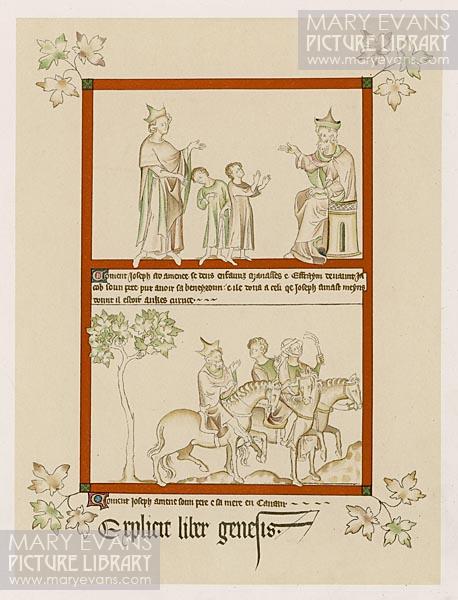 MARY EVANS
PICTURE LIBRARY
www.maryevans.com
Coment Joseph ad amenee se deus enfaunz Manasses e Effraym devaunt Ja
cob soun pere pur avoir sa beneyzoun: e ile dona a celi qe Joseph amast meyns
dount il estoit aukes curuce
Coment Joseph amene soun pere e sa mere en Canaan
Explicit liber genesis.
MARY EVANS
PICTURE LIBRARY
www.maryevans.com